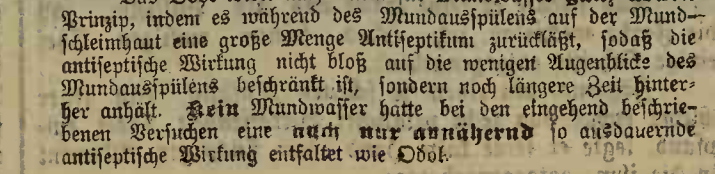 Prinzip, indem es während des Mundausspülens auf der Mund-
schleimhaut eine große Menge Antiseptikum zurückläßt, sodaß die
antiseptische Wirkung nicht bloß auf die wenigen Augenblicke des
Mundausspülens beschränkt ist, sondern noch längere Zeit hinter-
her anhält. Kein Mundwasser hatte bei den eingehend beschrie-
benen Versuchen eine auch nur annähernd so ausdauernde
antiseptische Wirkung entfaltet wie Odol.